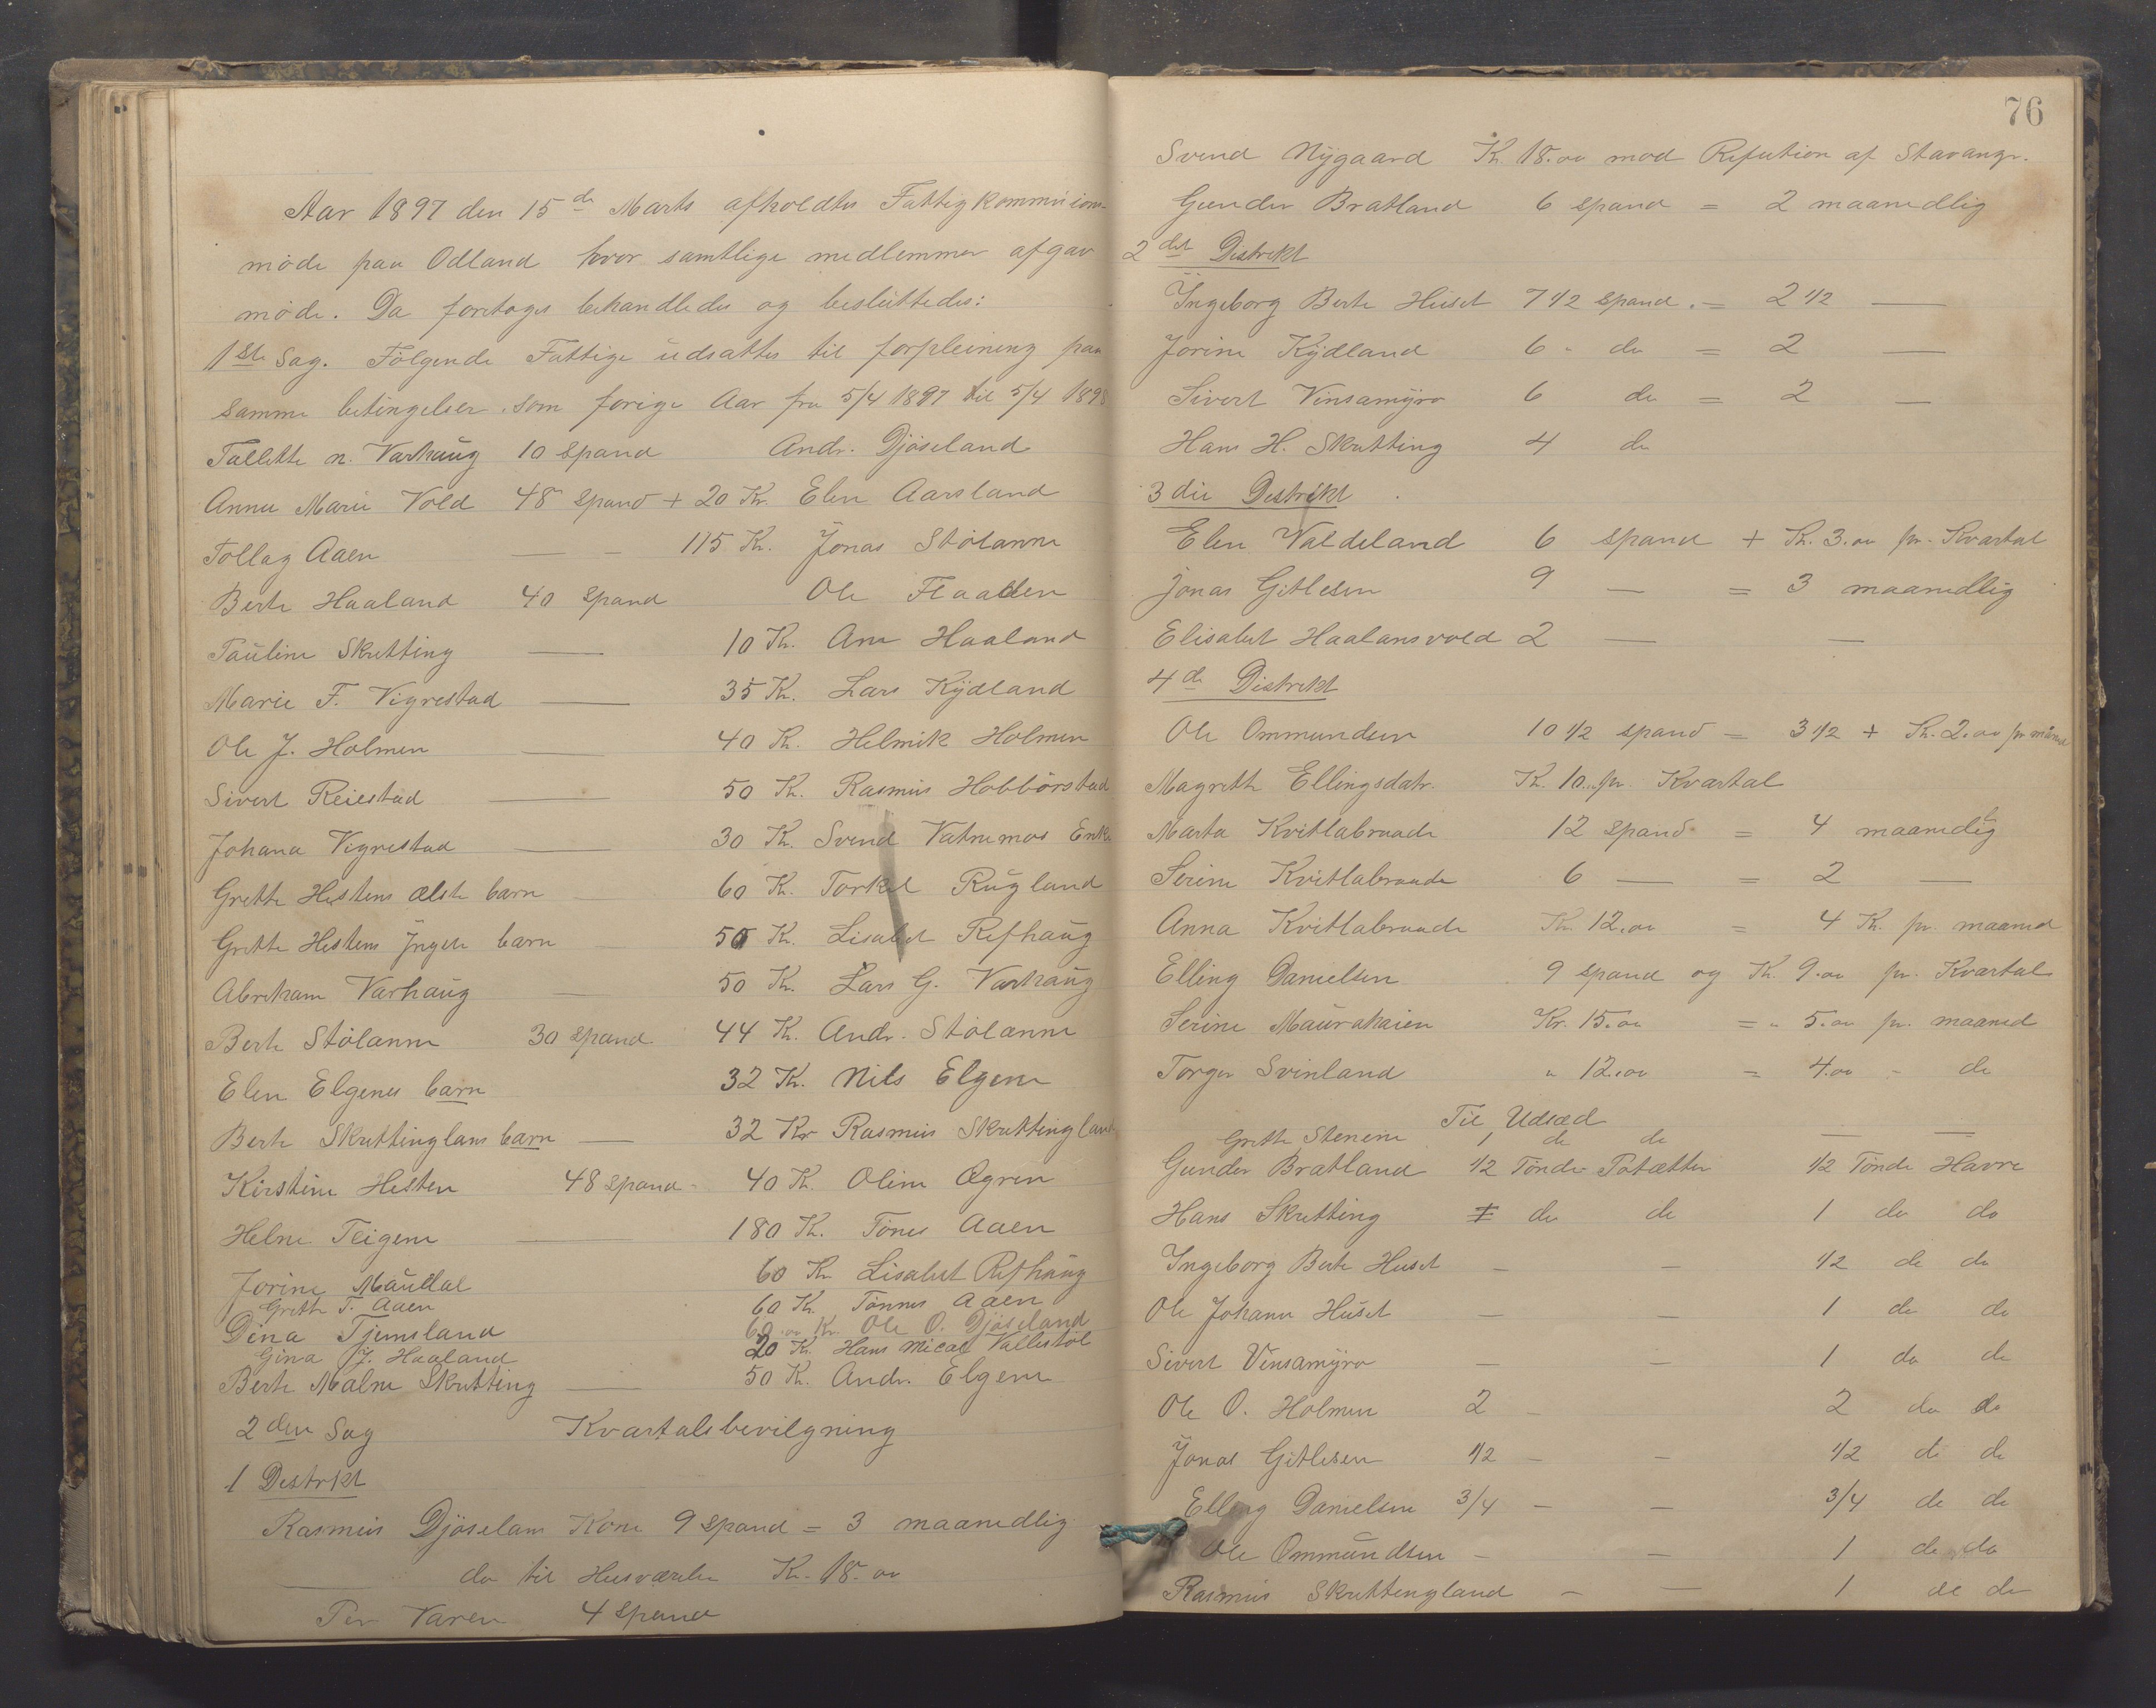 Aar 1897 den 15de Marts afholdtes Fattigkommisions-
møde paa Odland hvor samtlige medlemmer afgav
møde. Da foretoges behandledes og besluttedes:
1ste Sag. Følgende Fattige udsattes til forpleining paa
samme betingelser som forige Aar fra 5/4 1897 til 5/4 1898
Tallette n. Varhaug 10 spand Andr. Djöseland
Anna Marie Vold 48 spand + 20 Kr. Elen Aarsland
Tollag Aaen — - 115 Kr. Jonas Stölanne
Berte Haaland 40 spand Ole Flaaden
Pauline Skretting — 10 Kr. Ane Haaland
Marie F. Vigrestad — 35 Kr. Lars Kÿdland
Ole J. Holmen — 40 Kr. Helmik Holmen
Sivert Reiestad — 50 Kr. Rasmus Hobbörstad
Johana Vigrestad — 30 Kr. Svend Vatnemos Enke
Grette Hestens ælste barn — 60 Kr. Torkel Rugland
Grette Hestens Jngste barn — 50 Kr. Lisabet Refhaug
Abreham Varhaug — 50 Kr. Lars G. Varhaug
Berte Stölanne 30 spand 44 Kr. Andr. Stölanne
Elen Elgenes barn 32 Kr. Nils Elgene
Berte Skrettinglans barn — 32 Kr Rasmus Skrettingland
Kirstine Hesten 48 spand - 40 Kr. Oline Ægren
Helne Teigene — 180 Kr. Tönes Aaen
Jorine Maudal 60 Kr Lisabet Refhaug
Grette T. Aaen 60 Kr. Tönnes Aaen
Dina Tjemsland 60.00 Kr. Ole O. Djöseland
Gina J. Haaland 20 Kr. Hans Mical Vallestöl
Berte Malne Skretting — 50 Kr. Andr. Elgene
2den Sag Kvartalsbevilgning
1 Destrkt
Rasmus Djöselans Kone 9 spand = 3 maanedlig
— do til Husværelse Kr. 18.00
Per Varen 4 spand
76
Svend Nÿgaard Kr. 18.00 mod Refution af Stavangr.
Gunder Bratland 6 spand = 2 maanedlig
2det Distrekt
Ingeborg Berte Huset 7 1/2 spand. = 2 1/2 —
Jorine Kÿdland 6 - do = 2 —
Sivert Vinsamÿro 6 do = 2 —
Hans H. Skretting 4 do
3die Destrikt
Elen Valdeland 6 spand + Kr. 3.00 pr. Kvartal
Jonas Gitlesen 9 — = 3 maanedlig
Elisabet Haalansvold 2 — —
4de Distrekt
Ole Ommundsen 10 1/2 spand = 3 1/2 + Kr. 2.00 pr maaned
Magrethe Ellingsdatr. Kr. 10.. pr. Kvartal
Marta Kvitlabraade 12 spand = 4 maanedlig
Serine Kvitlabraade 6 — = 2 —
Anna Kvitlabraade Kr. 12.00 = 4 Kr. pr. maaned
Elling Danielsen 9 spand og Kr. 9.00 pr. Kvartal
Serine Maurahaien Kr. 15.00 = " 5.00 pr. maaned
Torger Svinland " 12.00 = 4.00 - do
Til Udsæd
Grette Stenene 1 do do — —
Gunder Bratland 1/2 Tönde Potætter 1/2 Tönde Havre
Hans Skretting 1 do do 1 do do
Ingeborg Berte Huset - - 1/2 do do
Ole Johana Huset - - 1 do do
Sivert Vinsamÿro - - 1 do do
Ole O. Holmen 2 - 2 do do
Jonas Gitlesen 1/2 - - 1/2 do do
Elling Danielsen 3/4 - - 3/4 do do
Ole Ommundsen - - 1 do do
Rasmus Skrettengland - - 1 do do